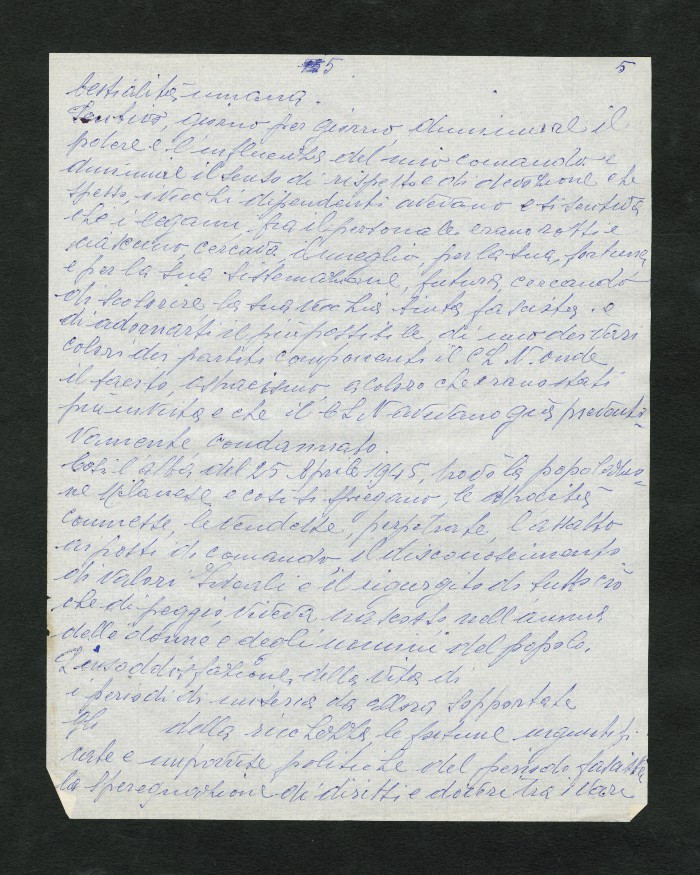 5 5
bestialità umana.
Sentivo, giorno per giorno, diminuire il
potere e l'influenza del mio comando e
diminuire il senso di rispetto e di devozione che
spesso, i vecchi dipendenti avevano e si sentiva
che i legami, fra il personale erano rotti e
ciascuno, cercava, il meglio, per la sua, fortuna
e per la sua sistemazione, futura, cercando
di scolorire la sua vecchia tinta fascista e
di adornarsi il più possibile, di uno dei vari
colori dei partiti componenti il C L N. onde
il ostracismo, a coloro che erano stati
più in vista e che il C L N avevano già preventi-
vamente condannato.
Così l'alba del 25 Aprile 1945, trovò la popolazio-
ne Milanese e così si spiegano, le atrocità
commesse, le vendette, perpetrate, l'assalto
ai posti di comando il disconoscimento
di valori Ideali e il rigurgito di tutto ciò
che di peggio viveva nascosto nell'anima
delle donne e degli uomini del popolo.
L'insoddisfazione, della vita di
i periodi di miseria da allora sopportate
Gli della ricchezza le fortune ingiustifi-
cate e improvvise politiche del periodo fascista
la sperequazione di diritti e doveri tra i vari